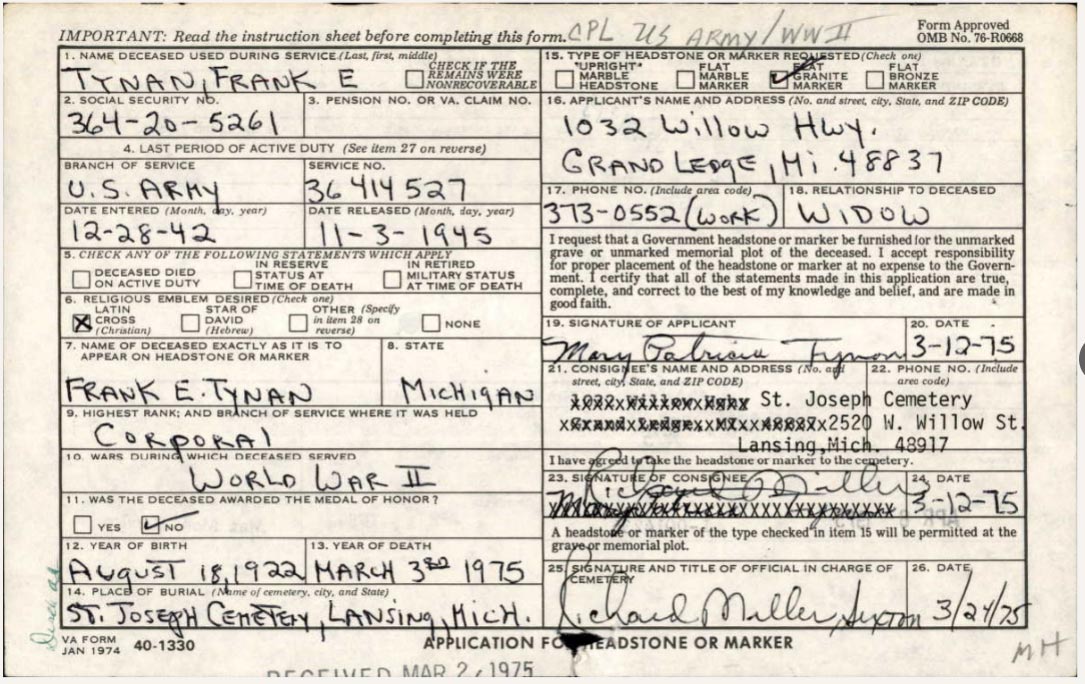 CPL US ARMY/WW II
IMPORTANT: Read the instruction sheet before completing this form.
Form Approved
OMB No. 76-R0668
1. NAME DECEASED USED DURING SERVICE (Last, first, middle)
TYNAN, FRANK E
CHECK IF THE
REMAINS WERE
NONRECOVERABLE
2. SOCIAL SECURITY NO.
364-20-5261
3. PENSION NO. OR VA. CLAIM NO.
4. LAST PERIOD OF ACTIVE DUTY (See item 27 on reverse)
BRANCH OF SERVICE
U.S. ARMY
SERVICE NO.
36 414 527
DATE ENTERED (Month, day, year)
12-28-42
DATE RELEASED (Month, day, year)
11-3-1945
5. CHECK ANY OF THE FOLLOWING STATEMENTS WHICH APPLY
DECEASED DIED
ON ACTIVE DUTY
IN RESERVE
STATUS AT
TIME OF DEATH
IN RETIRED
MILITARY STATUS
AT TIME OF DEATH
6. RELIGIOUS EMBLEM DESIRED (Check one)
LATIN
CROSS
(Christian)
STAR OF
DAVID
(Hebrew)
OTHER (Specify
in item 28 on
reverse)
NONE
7. NAME OF DECEASED EXACTLY AS IT IS TO
APPEAR ON HEADSTONE OR MARKER
FRANK E. TYNAN
8. STATE
MICHIGAN
9. HIGHEST RANK; AND BRANCH OF SERVICE WHERE IT WAS HELD
CORPORAl
10. WARS DURING WHICH DECEASED SERVED
WORLD WAR II
11. WAS THE DECEASED AWARDED THE MEDAL OF HONOR?
YES
NO
12. YEAR OF BIRTH
AUGUST 18, 1922
13. YEAR OF DEATH
MARCH 3RD 1975
14. PLACE OF BURIAL (Name of cemetery, city, and State)
ST. JOSEPH CEMETERY, LANSING, MICH.
15. TYPE OF HEADSTONE OR MARKER REQUESTED (Check one)
"UPRIGHT"
MARBLE
HEADSTONE
FLAT
MARBLE
MARKER
FLAT
GRANITE
MARKER
FLAT
BRONZE
MARKER
16. APPLICANT'S NAME AND ADDRESS (No. and street, city, State, and ZIP CODE)
1032 Willow Hwy.
GRAND LEDGE, Mi. 48837
17. PHONE NO. (Include area code)
373-0552 (WORK)
18. RELATIONSHIP TO DECEASED
WIDOW
I request that a Government headstone or marker be furnished for the unmarked
grave or unmarked memorial plot of the deceased. I accept responsibility
for proper placement of the headstone or marker at no expense to the Govern-
ment. I certify that all of the statements made in this application are true,
complete, and correct to the best of my knowledge and belief, and are made in
good faith.
19. SIGNATURE OF APPLICANT
Mary Patricia Tynan
20. DATE
3-12-75
21. CONSIGNEE'S NAME AND ADDRESS (No. and
street, city, State, and ZIP CODE)
22. PHONE NO. (Include
area code)
St. Joseph Cemetery
2520 W. Willow St.
Lansing, Mich. 48917
I have agreed to take the headstone or marker to the cemetery.
23. SIGNATURE OF CONSIGNEE
Richard Miller
24. DATE
3-12-75
A headstone or marker of the type checked in item 15 will be permitted at the
grave or memorial plot.
25. SIGNATURE AND TITLE OF OFFICIAL IN CHARGE OF
CEMETERY
Richard Miller, Sexton
26. DATE
3/24/75
VA FORM
JAN 1974
40-1330
APPLICATION FOR HEADSTONE OR MARKER
MH
RECEIVED MAR 2 1975